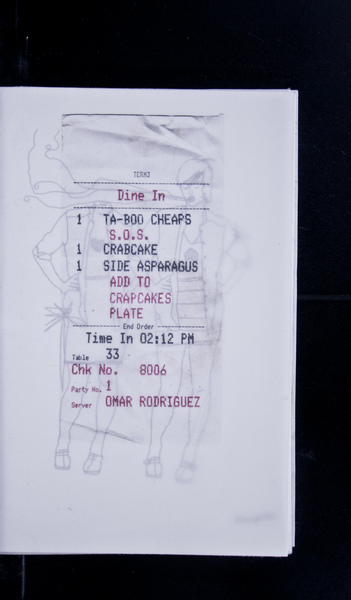 TERM3
Dine In
1 TA-BOO CHEAPS
S.O.S.
1 CRABCAKE
1 SIDE ASPARAGUS
ADD TO
CRAPCAKES
PLATE
End Order
Time In 02:12 PM
Table 33
Chk No. 8006
Party No. 1
Server OMAR RODRIGUEZ